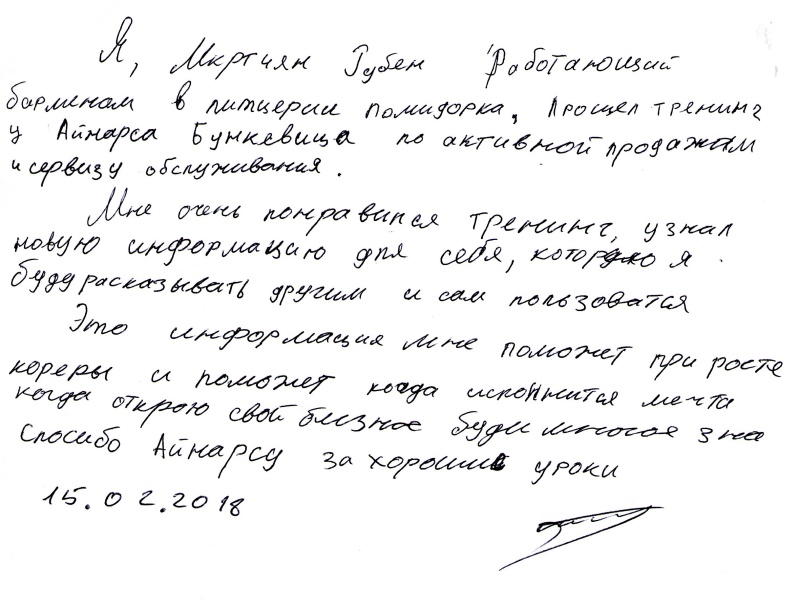 Я, Мкртчян Рубен Работающий
барменам в питцерии помидорка, Прошел тренинг
у Айнарса Бункевица по активной продажам
и сервизу обслуживания.
Мне очень понравился тренинг, узнал
новую информацию для себя, которую я
буду расказывать другим и сам пользоватся
Это информация мне поможет при росте
кореры и поможет когда исполнится мечта
когда открою свой близнес буду многое зна
Спосибо Айнарсу за хорошие уроки
15.02.2018